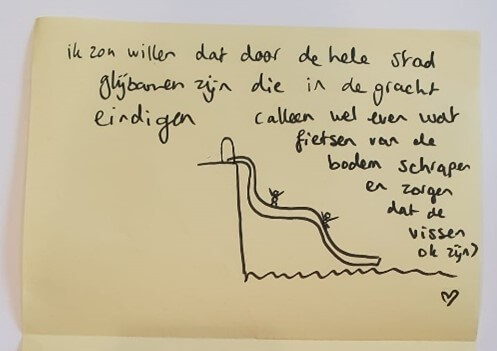 ik zou willen dat door de hele stad
glijbanen zijn die in de gracht
eindigen
(alleen wel even wat
fietsen van de
bodem schrapen
en zorgen
dat de
vissen
ok zijn)